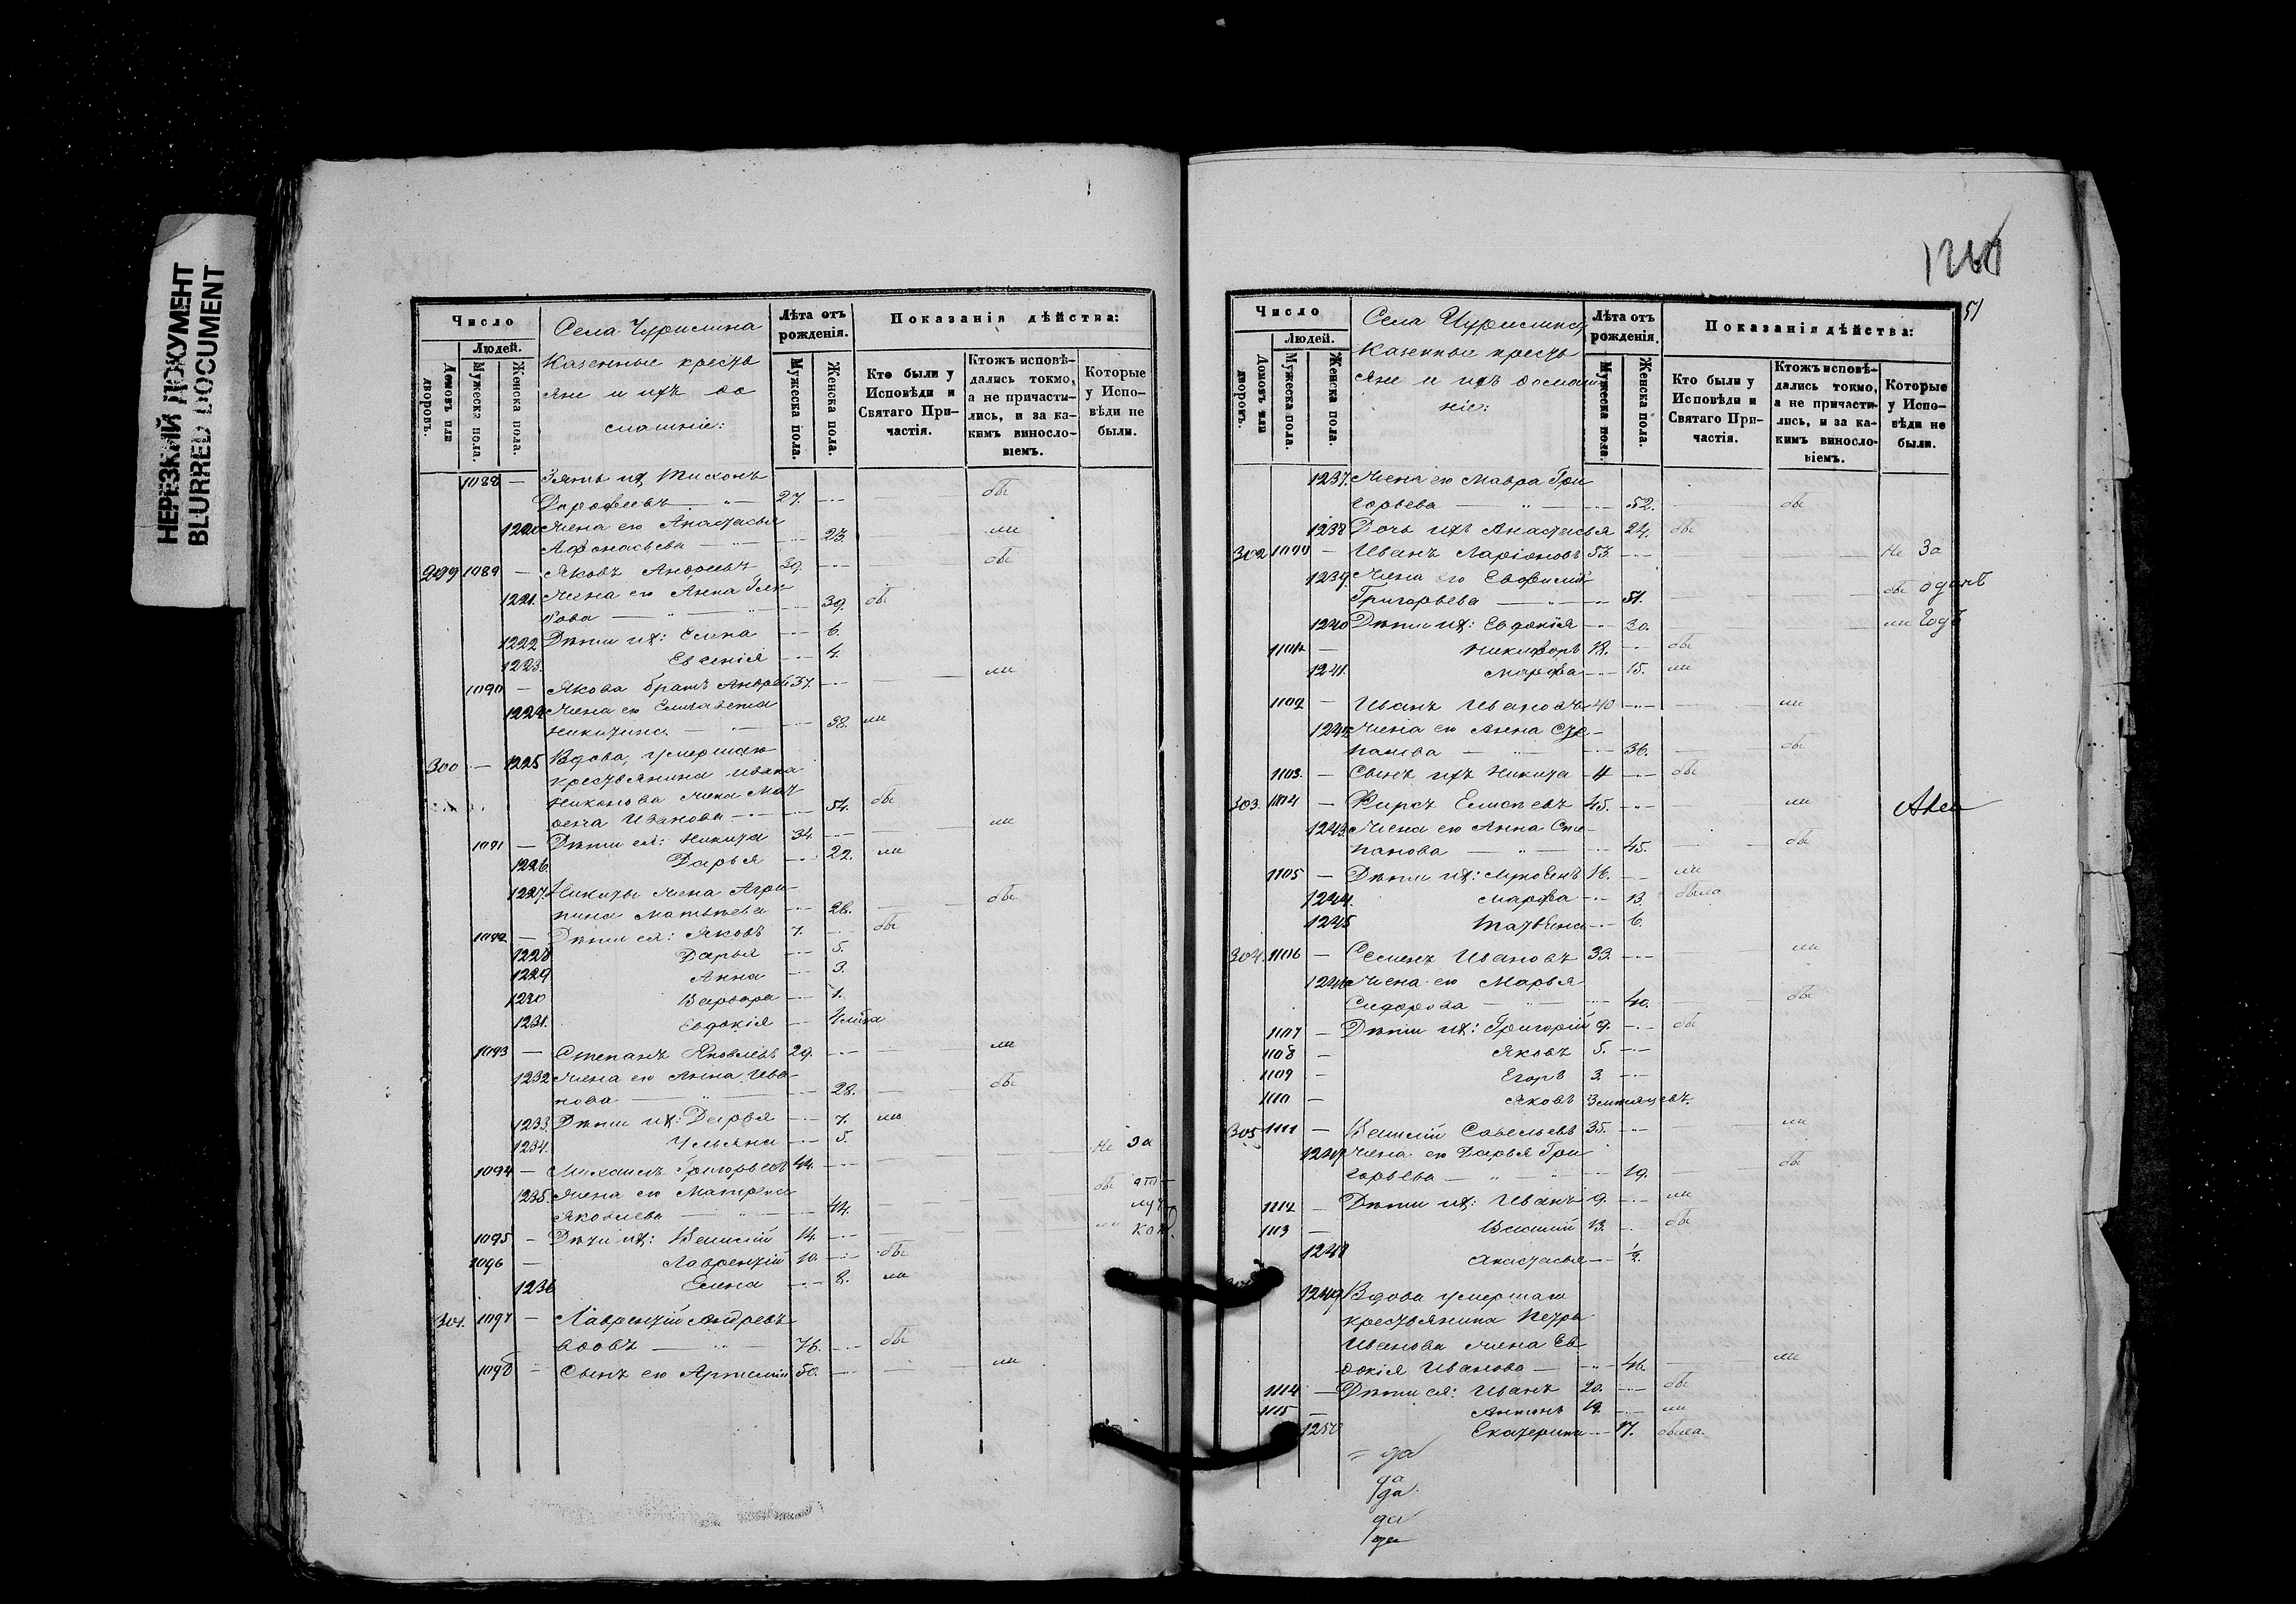 НЕРЕЗКИЙ ДОКУМЕНТ
BLURRED DOCUMENT
Число
Людей.
Домовъ или дворовъ.
Мужеска пола.
Женска пола.
Села Чурилина
Казенные кресть
яне и ихъ до
машніе:
Лѣта отъ рожденія.
Мужеска пола.
Женска пола.
Показанія дѣйства:
Кто были у Исповѣди и Святаго Причастія.
Ктожъ исповѣдались токмо, а не причастились, и за какимъ винословіемъ.
Которые у Исповѣди не были.
1088 — Зять их Тихонъ
Дорофеевъ — " — 27. бы
1220 Жена его Анастасья
Афонасьева — " — 23. ли
299 1089 — Яковъ Андреевъ 39. бы
1221. Жена его Анна
— 39. бы
1222 Дѣти их: Елена — 6.
1223. Евгенія — 4.
1090 — Якова братъ Андрей 37. ли
1224 Жена его Елизавета
Никитина — 38. ли
300 — 1225 Вдова, умершаго
крестьянина Ивана
Никонова жена Мат
рена Иванова — 54. бы
1091 — Дѣти ея: Никита 34. ли
1226. Дарья — 22. ли
1227. Никиты жена Агри-
пина Матвѣева — 28. бы
1092 — Дѣти ея: Яковъ 7. бы
1228 Дарья — 5.
1229 Анна — 3.
1230 Варвара — 1.
1231. Евдокія —
1093 — Степанъ Яковлевъ 29. ли
1232 Жена его Анна Ива
нова — " — 28. бы
1233. Дѣти их: Дарья — 7. ли
1234. Ульяна — 5.
1094 — Михаилъ Григорьевъ 44. Не за
1235. Жена его Матрена
Яковлева — 44. бы от
луч
1095 — Дѣти их: Василій 14. ли кой
1096 — Лаврентій 10. бы
1236 Елена — 8. ли
301. 1097 — Лаврентій Андреевъ
— " — 76. бы
1098 — Сынъ его Артемій 50. ли
51
Число
Людей.
Домовъ или дворовъ.
Мужеска пола.
Женска пола.
Села Чурилина
Казенные кресть
яне и ихъ домаш
ніе:
Лѣта отъ рожденія.
Мужеска пола.
Женска пола.
Показанія дѣйства:
Кто были у Исповѣди и Святаго Причастія.
Ктожъ исповѣдались токмо, а не причастились, и за какимъ винословіемъ.
Которые у Исповѣди не были.
1237. Жена его Мавра Гри
горьева — " — 52. бы
1238 Дочь ихъ Анастасья 24. бы
302 — Иванъ Ларіоновъ 53. Не За
1239. Жена его Евфимія
Григорьева — " — 51. бы одинъ
1240 Дѣти их: Евдокія — 30. ли годъ
— Никифоръ 18. бы
1241. Марфа — 15. ли
1102 — Иванъ Ивановъ 40 ли
1242 Жена его Анна Сте-
панова — " — 36. бы
1103. — Сынъ ихъ Никита 4 бы
303. 1104 — Фирсъ Елисеевъ 45. ли
1243. Жена его Анна Сте-
панова — " — 45. бы
1105 — Дѣти их: 16. ли
1244. Марфа — 13. была
1245 Татьяна — 6.
304. 1106 — Семенъ Ивановъ 33. ли
1246 Жена его Марья
Сидорова — " — 40. бы
1107 — Дѣти их: Григорій 9. бы
1108 — Яковъ 5.
1109 — Егоръ 3.
1110 — Яковъ 3 мѣсяцевъ.
305 1111 — Василій Савельевъ 35. ли
1247 Жена его Дарья Гри
горьева — " — 19. бы
1112 — Дѣти их: Иванъ 9. ли
1113 — Василій 13. бы
1248 Анастасья — ½.
1249 Вдова умершаго
крестьянина Петра
Иванова жена Ев-
докія Иванова — 46. ли
1114 — Дѣти ея: Иванъ 20. бы
1115 — Антонъ 19. ли
1250 Екатерина — 17. была
да
да
да
да
да